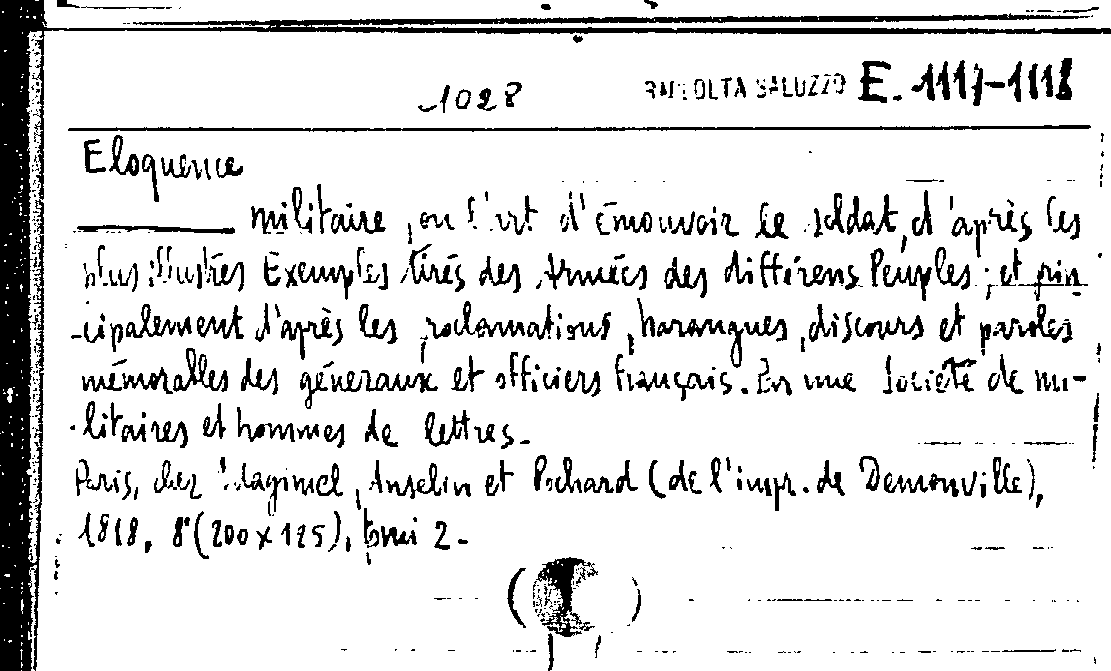 1028 RACCOLTA SALUZZO E. 1117-1118
Eloquence
militaire, ou l'art d'émouvoir le soldat, d'après les
plus illustres Exemples tirés des Armées des différens Peuples; et prin
-cipalement d'après les proclamations, harangues, discours et paroles
mémorables des généraux et officiers français. Par une Société de mi-
-litaires et hommes de lettres.
Paris, chez Magimel, Anselin et Pochard (de l'impr. de Demonville),
1818, 8° (200 x 125), tomi 2.